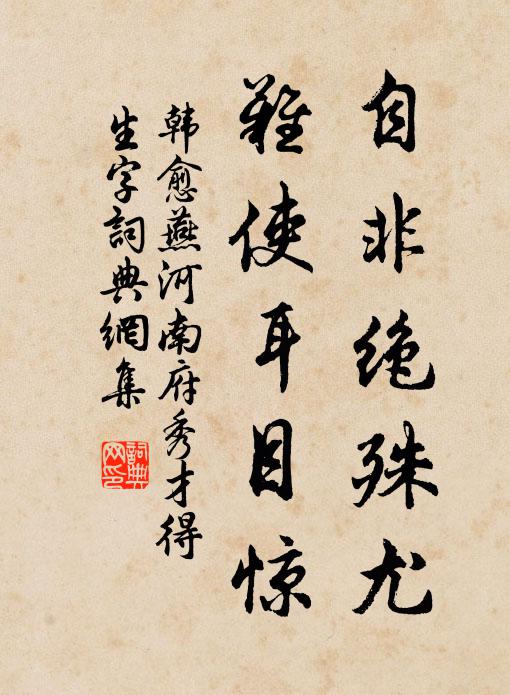 自非绝殊尤
難使耳目惊
韩愈燕河南府秀才得
生字詞典網集
詞典
网印